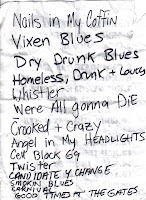 Nails in My Coffin
Vixen Blues
Dry Drunk Blues
Homeless, Drunk + Lousy
Whistler
Were All gonna DiE
Crooked + Crazy
Angel in My HEADLIGHTS
Cell Block 69
Twister
CANDIDATE 4 CHANGE
SMOKIN BLUES
CARNIVAL
GOOD TIMES AT THE GATES